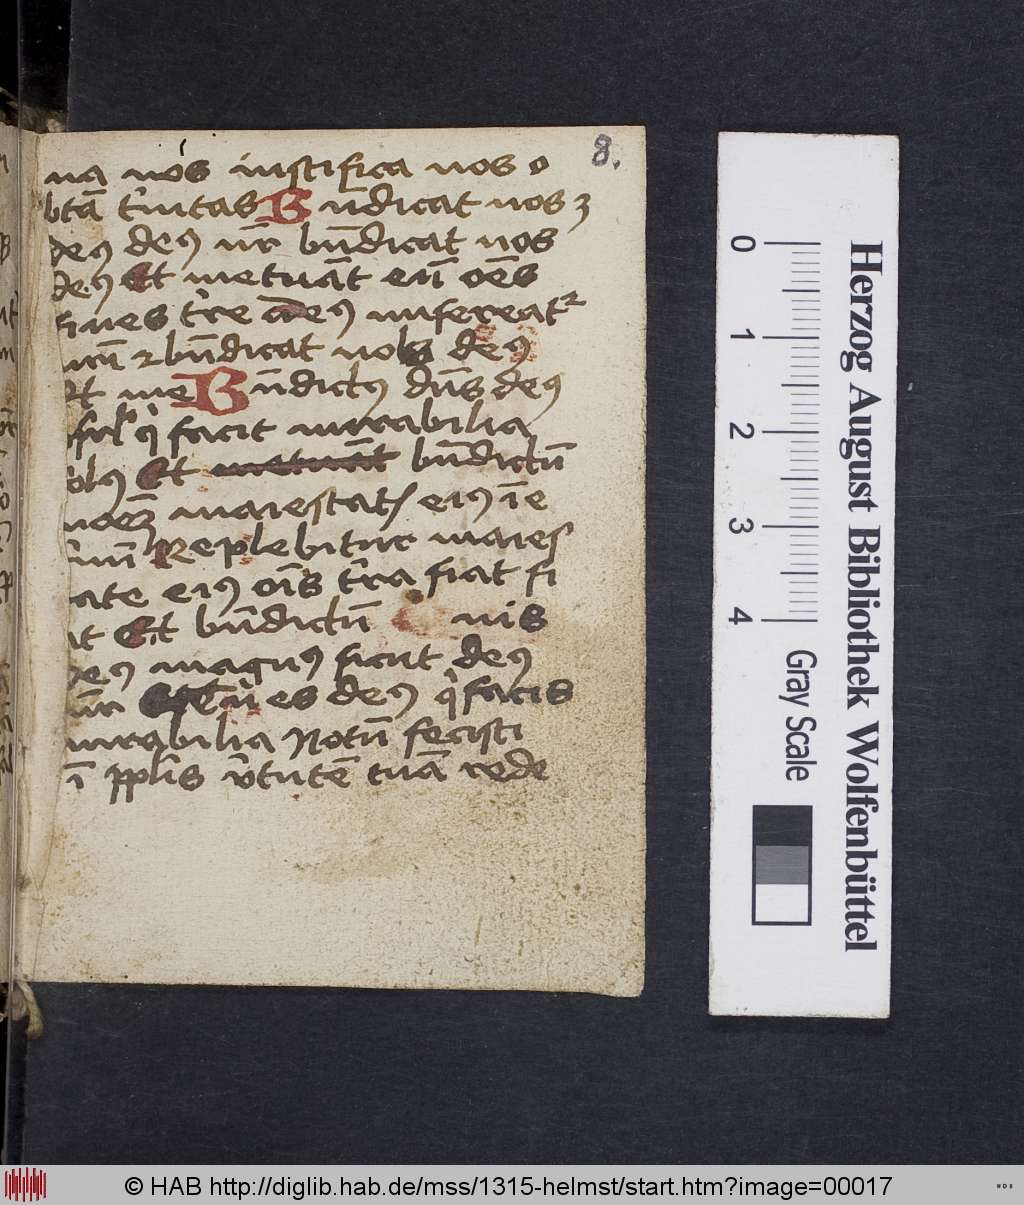 8.
na nos iustifica nos o
btā t'nitas Bn̄dicat nos ʒ
deꝰ deꝰ nr̄ bn̄dicat nos
deꝰ Et metuāt eū oēs
fines t're deꝰ misereatᷣ
nr̄i ⁊ bn̄dicat nob deꝰ
Et me Bn̄dictꝰ dn̄s deꝰ
isrl' qⁱ facit mirabilia
solꝰ Et metuāt bn̄dictū
nomē maiestatꝭ eiꝰ ī e
t'nū Replebitur maies
tate eiꝰ oīs t'ra fiat fi
at Et bn̄dictū nis
deꝰ magnꝰ sicut deꝰ
nr̄ tu es deꝰ qⁱ facis
mirabilia Notū fecisti
ī pplīs v'tutē tuā rede
Herzog August Bibliothek Wolfenbüttel
0 1 2 3 4
Gray Scale
© HAB http://diglib.hab.de/mss/1315-helmst/start.htm?image=00017